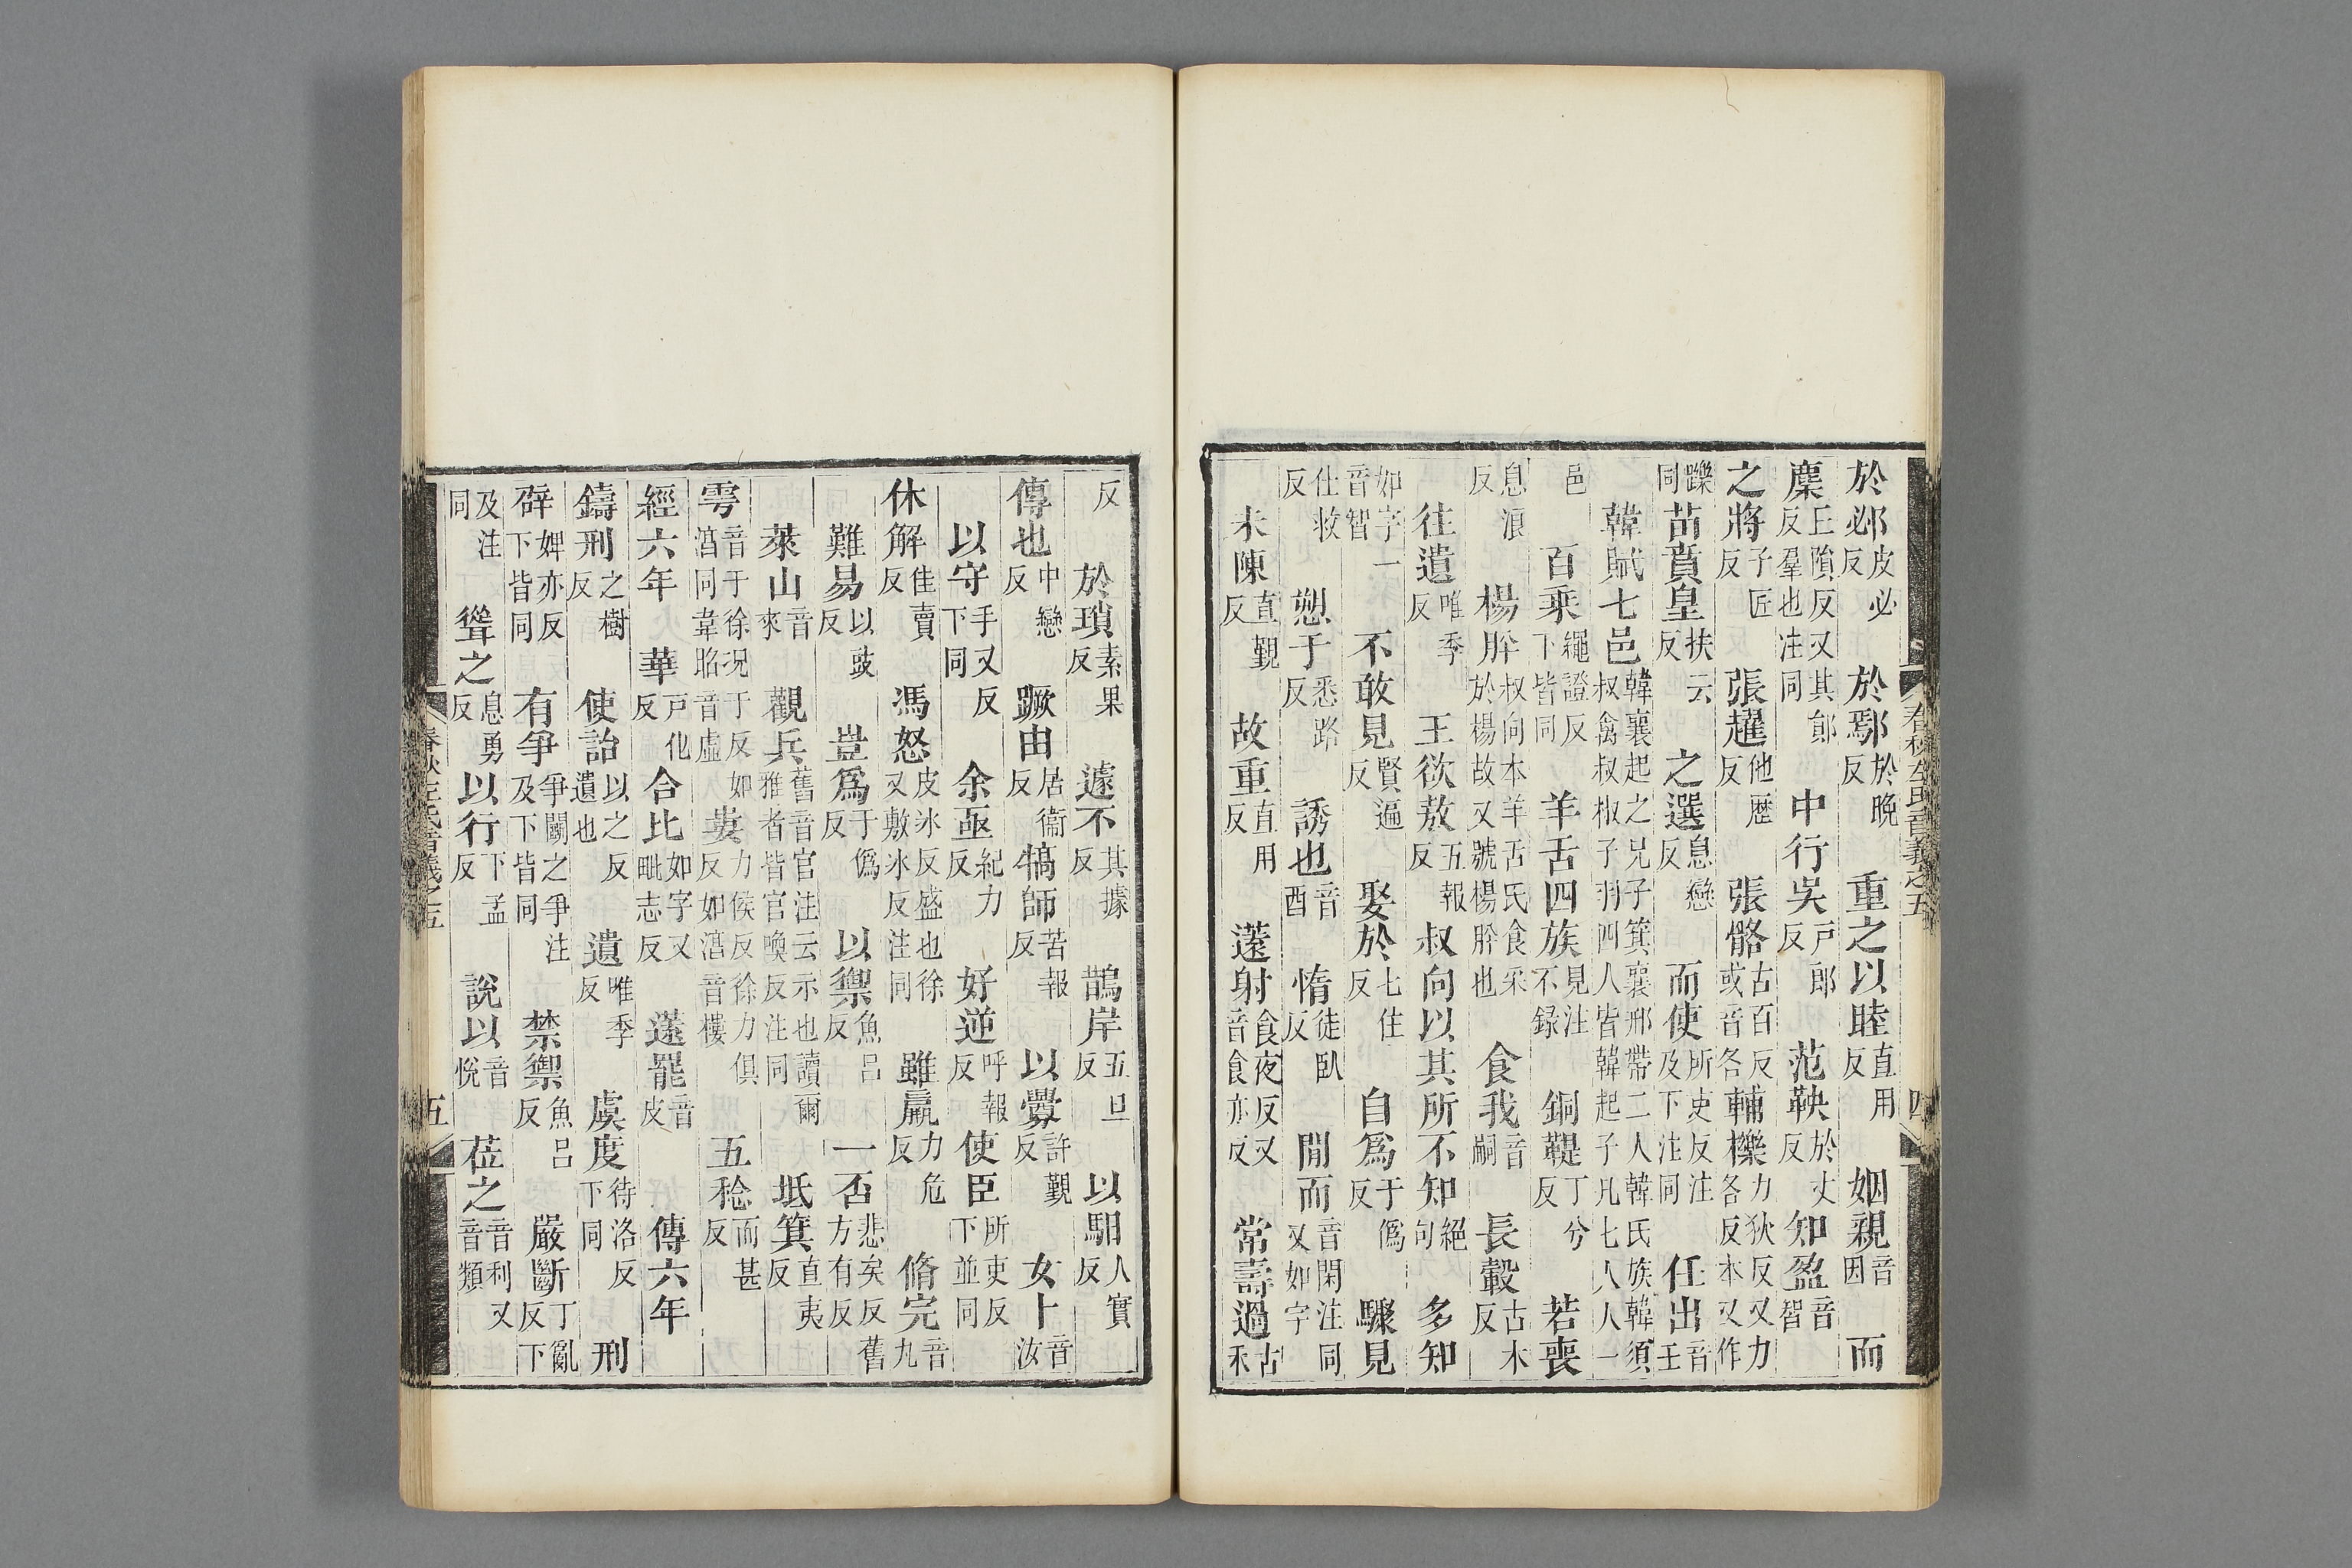 於邲皮必反 於鄢於晚反 重之以睦直用反 姻親音因 而
麇丘隕反又其郎反羣也注同 中行吳戶郎反 范鞅於丈反 知盈音智
之將子匠反 張趯他歷反 張骼古百反或音各 輔櫟力狄反又力各反本又作
躒同 苗賁皇扶云反 之選息戀反 而使所吏反注及下注同 任出音壬
韓賦七邑韓襄起之兄子箕襄邢帶二人韓氏族韓須叔禽叔椒子羽四人皆韓起子凡七人人一
邑 百乘繩證反下皆同 羊舌四族見注不録 銅鞮丁兮反 若喪
息浪反 楊肸叔向本羊舌氏食采於楊故又號楊肸也 食我音嗣 長轂古木反
往遺唯季反 王欲敖五報反 叔向以其所不知絕句 多知
如字一音智 不敢見賢遍反 娶於七住反 自爲于僞反 驟見
仕救反 愬于悉路反 誘也音酉 惰徒臥反 閒而音閑注同又如字
未陳直覲反 故重直用反 薳射食夜反又音食亦反 常壽過古禾
春秋左氏音義之五 四
反 於瑣素果反 遽不其據反 鵲岸五旦反 以馹人實反
傳也中戀反 蹶由居衞反 犒師苦報反 以釁許覲反 女卜音汝
以守手又反下同 余亟紀力反 好逆呼報反 使臣所吏反下並同
休解佳賣反 馮怒皮冰反盛也徐又敷冰反注同 雖羸力危反 脩完音九
難易以豉反 豈爲于僞反 以禦魚呂反 一否悲矣反舊方有反
萊山音來 觀兵舊音官注云示也讀爾雅者皆官喚反注同 坻箕直夷反
雩音于徐況于反如湻同韋昭音虛 婁力侯反徐力俱反如湻音樓 五稔而甚反
經六年 華戶化反 合比如字又毗志反 薳罷音皮 傳六年
鑄刑之樹反 使詒以之反遺也 遺唯季反 虞度待洛反下同 刑
辟婢亦反下皆同 有爭爭鬭之爭注及下皆同 禁禦魚呂反 嚴斷丁亂反下
及注同 聳之息勇反 以行下孟反 說以音悅 莅之音利又音類
春秋左氏音義之五 五